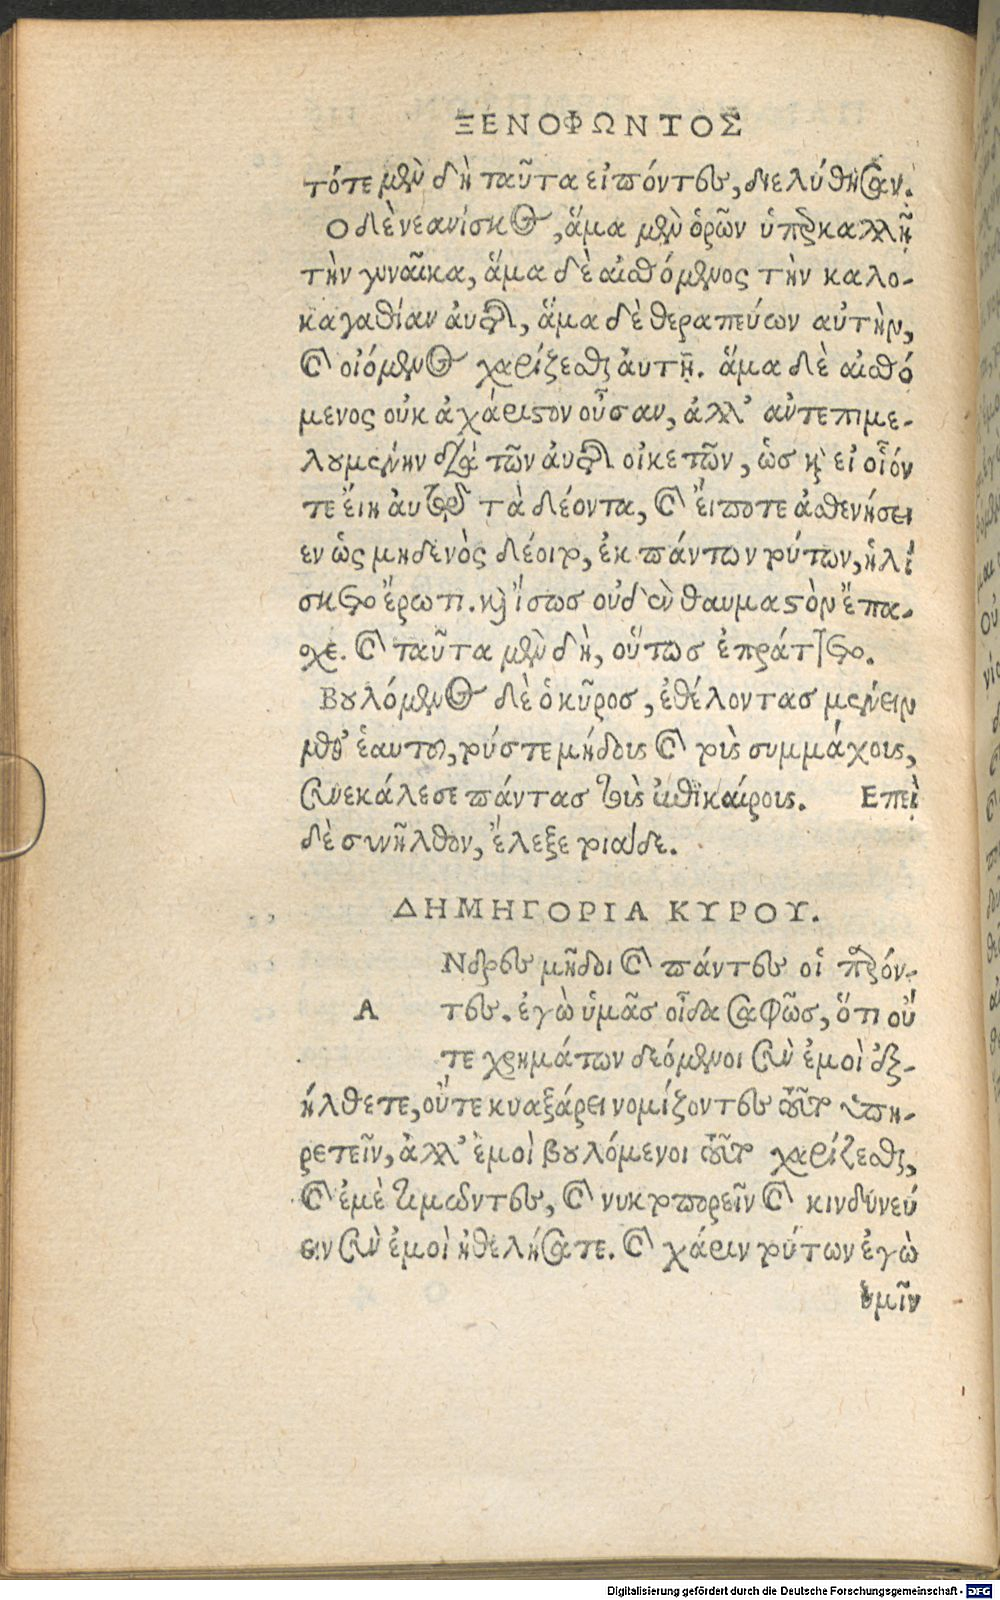 ΞΕΝΟΦΩΝΤΟΣ
τότε μὲν δὴ ταῦτα εἰπόντες, διελύθησαν.
Ο δὲ νεανίσκος, ἅμα μὲν ὁρῶν ὑπερκαλλῆ
τὴν γυναῖκα, ἅμα δὲ αἰσθόμενος τὴν καλο-
καγαθίαν ἀυτῆς, ἅμα δὲ θεραπεύων αὐτὴν,
καὶ οἰόμενος χαρίζεσθαι ἀυτῇ. ἅμα δὲ αἰσθό
μενος οὐκ ἀχάριστον οὖσαν, ἀλλ' αὐτεπιμε-
λουμένην διὰ τῶν ἀυτῆς οἰκετῶν, ὡσ καὶ εἰσιόν
τι ἔιη ἀυτῷ τὰ δέοντα, καὶ ἔιποτε ἀσθενήσει
εν ὡς μηδενὸς δέοιτο, ἐκ πάντων τούτων, ἡλί
σκετο ἔρωτι. καὶ ἴσωσ οὐδὲν θαυμαστὸν ἔπα-
σχε. καὶ ταῦτα μὲν δὴ, οὕτωσ ἐπράττετο.
Βουλόμενος δὲ ὁ κῦροσ, ἐθέλοντασ μένειν
μεθ' ἑαυτοῦ, τούστε μήδους καὶ τοὺς συμμάχους,
συνεκάλεσε πάντασ τοὺς ἐπικαίρους. Επεὶ
δὲ συνῆλθον, ἔλεξε τοιαίδε.
ΔΗΜΗΓΟΡΙΑ ΚΥΡΟΥ.
Νδρες μῆδοι καὶ πάντες οἱ παρόν-
Α τες. ἐγὼ ὑμᾶσ οἶδα σαφῶσ, ὅτι οὔ
τε χρημάτων δεόμενοι σὺν ἐμοὶ ἐξ-
ήλθετε, οὔτε κυαξάρει νομίζοντες τοῦτο ὑπη-
ρετεῖν, ἀλλ' ἐμοὶ βουλόμενοι τοῦτο χαρίζεσθαι,
καὶ ἐμὲ τιμῶντες, καὶ νυκτοπορεῖν καὶ κινδύνεύ
ειν σὺν ἐμοὶ ἠθελήσατε. καὶ χάριν τούτων ἐγὼ
ὑμῖν
Digitalisierung gefördert durch die Deutsche Forschungsgemeinschaft - DFG